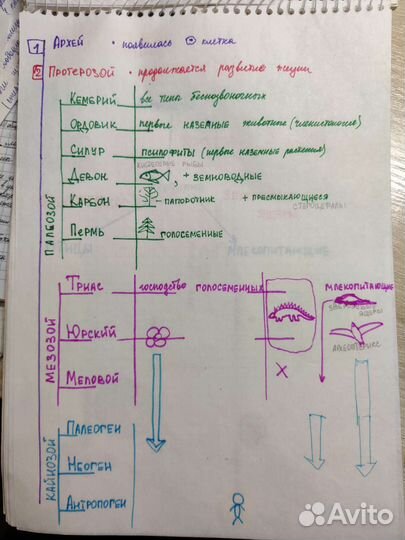 1 Архей • появилась клетка
2 Протерозой • продолжается развитие жизни
Палеозой
Кембрий все типы беспозвоночных
Ордовик первые наземные животные (членистоногие)
Силур псилофиты (первые наземные растения)
кистеперые рыбы
Девон , + земноводные
Карбон - папоротник + пресмыкающиеся
стегоцефалы
Пермь голосеменные
Мезозой
Триас господство голосеменных млекопитающие
ящеры
Юрский археоптерикс
Меловой X
Кайнозой
Палеоген
Неоген
Антропоген
Avito